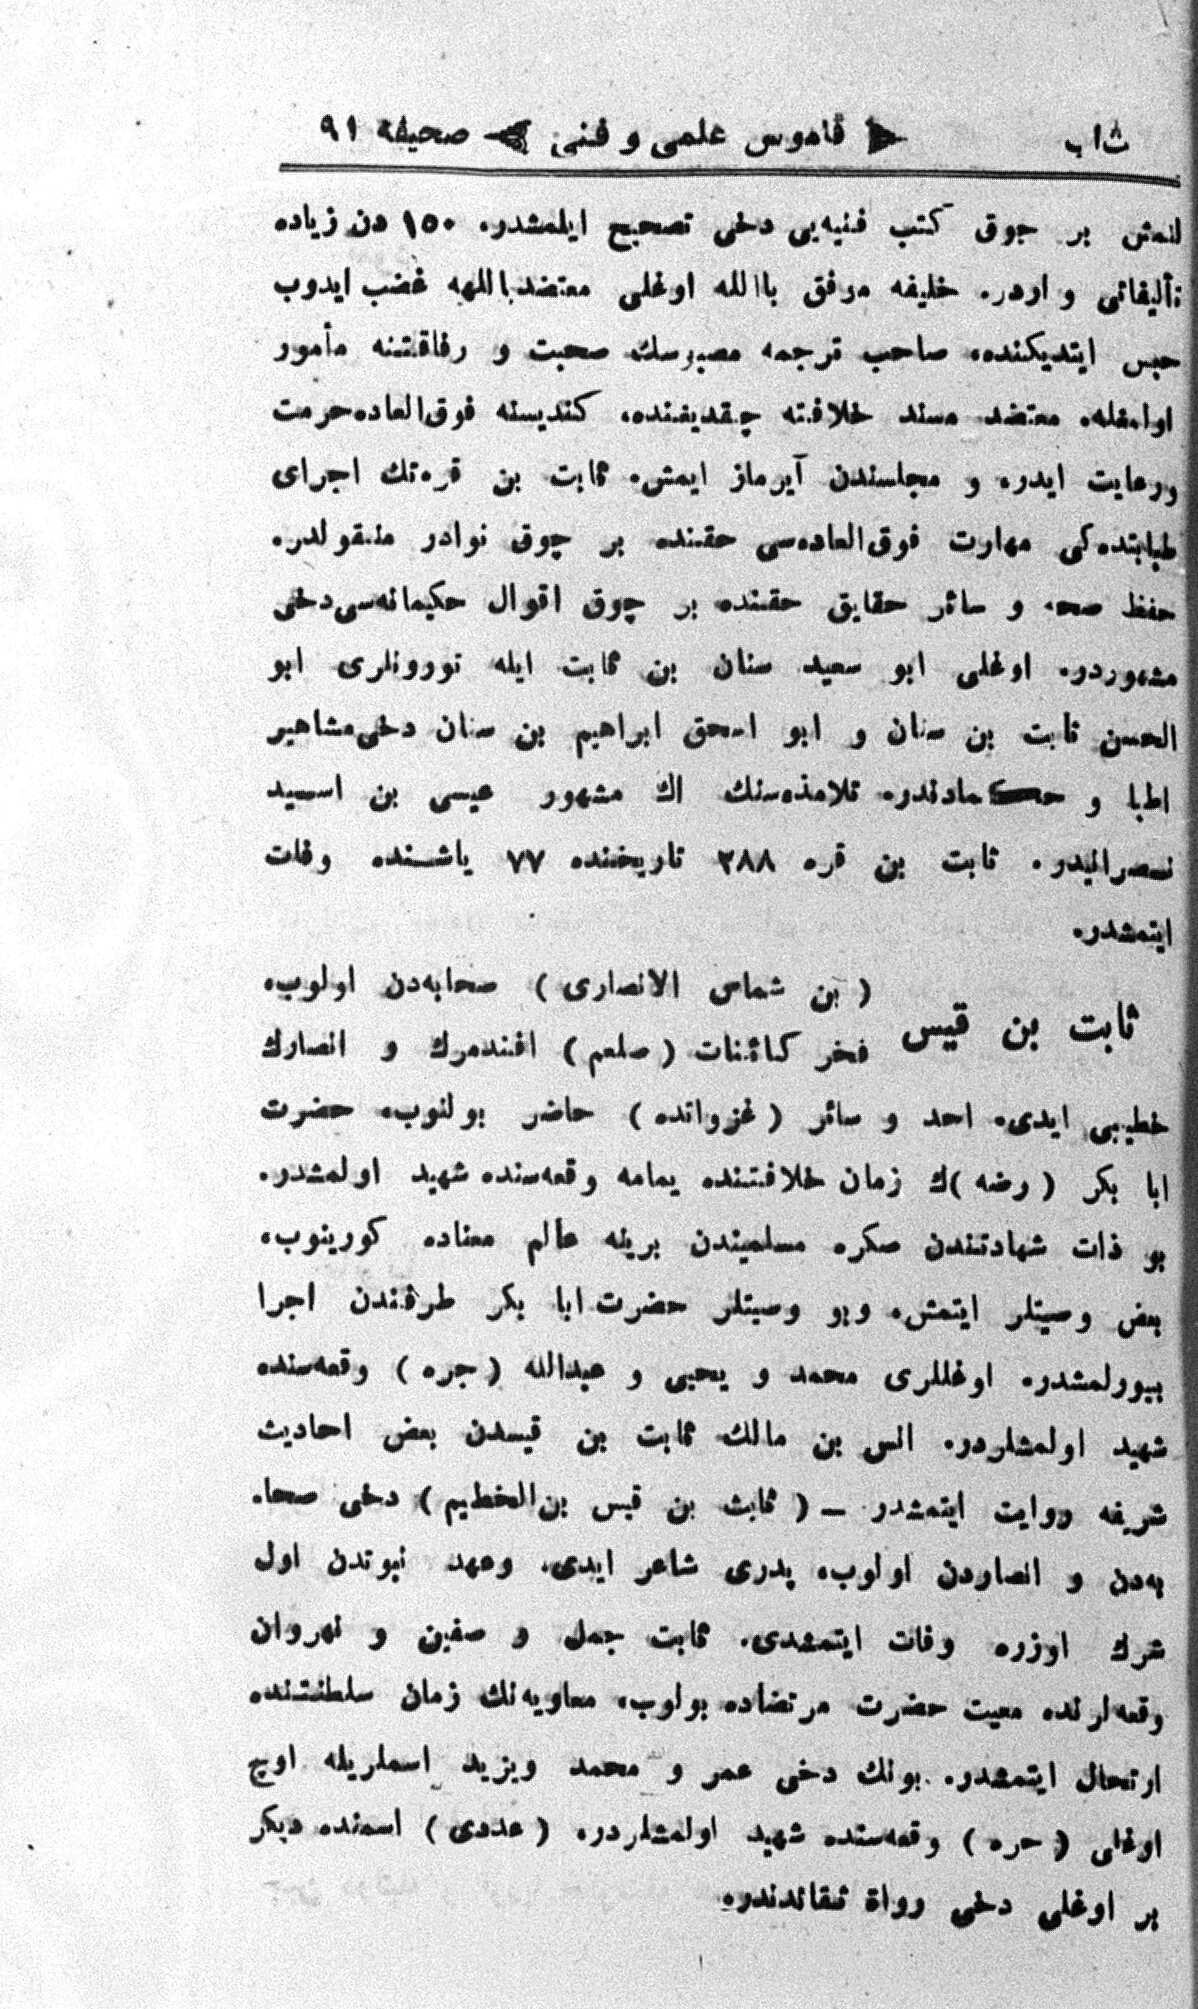 ثاب قاموس علمی و فنی صحیفه ٩١
لنمش بر جوق كتب فنیه‌یی دخی تصحیح ایلمشدر. ١٥٠ دن زیاده
تألیفاتی واردر. خلیفه موفق باالله اوغلی معتضدباللهه غضب ایدوب
حبس ایتدیكنده، صاحب ترجمه محبوسك صحبت و رفاقتنه مأمور
اولمغله، معتضد مسند خلافته چقدیغنده، كندیسنه فوق‌العاده‌حرمت
ورعایت ایدر، و مجلسندن آیرماز ایمش. ثابت بن قره‌نك اجرای
طبابتده‌كی مهارت فوق‌العاده‌سی حقنده بر چوق نوادر منقولدر.
حفظ صحه و سائر حقایق حقنده بر چوق اقوال حكیمانه‌سی‌دخی
مشهوردر. اوغلی ابو سعید سنان بن ثابت ایله تورونلری ابو
الحسن ثابت بن سنان و ابو اسحق ابراهیم بن سنان دخی‌مشاهیر
اطبا و حكمادندر. تلامذه‌سنك اك مشهور عیسی بن اسید
نصرانیدر. ثابت بن قره ٢٨٨ تاریخنده ٧٧ یاشنده وفات
ایتمشدر.
ثابت بن قیس ( بن شماس الانصاری ) صحابه‌دن اولوب،
فخر كائنات ( صلعم ) افندمزك و انصارك
خطیبی ایدی. احد و سائر ( غزواتده ) حاضر بولنوب، حضرت
ابا بكر ( رضه )ك زمان خلافتنده یمامه وقعه‌سنده شهید اولمشدر.
بو ذات شهادتندن صكره مسلمیندن برینه عالم معناده كورینوب،
بعض وصیتلر ایتمش، وبو وصیتلر حضرت ابا بكر طرفندن اجرا
بیورلمشدر. اوغللری محمد و یحیی و عبدالله ( جره ) وقعه‌سنده
شهید اولمشلردر. انس بن مالك ثابت بن قیسدن بعض احادیث
شریفه روایت ایتمشدر ـ ( ثابت بن قیس بن‌الخطیم ) دخی صحا.
به‌دن و انصاردن اولوب، پدری شاعر ایدی، وعهد نبوتدن اول
شرك اوزره وفات ایتمشدی. ثابت جمل و صفین و نهروان
وقعه‌لرنده معیت حضرت مرتضاده بولوب، معاویه‌نك زمان سلطنتنده
ارتحال ایتمشدر. بونك دخی عمر و محمد ویزید اسملریله اوچ
اوغلی ( حره ) وقعه‌سنده شهید اولمشلردر. ( عددی ) اسمنده دیكر
بر اوغلی دخی رواة ثقاتدندر.